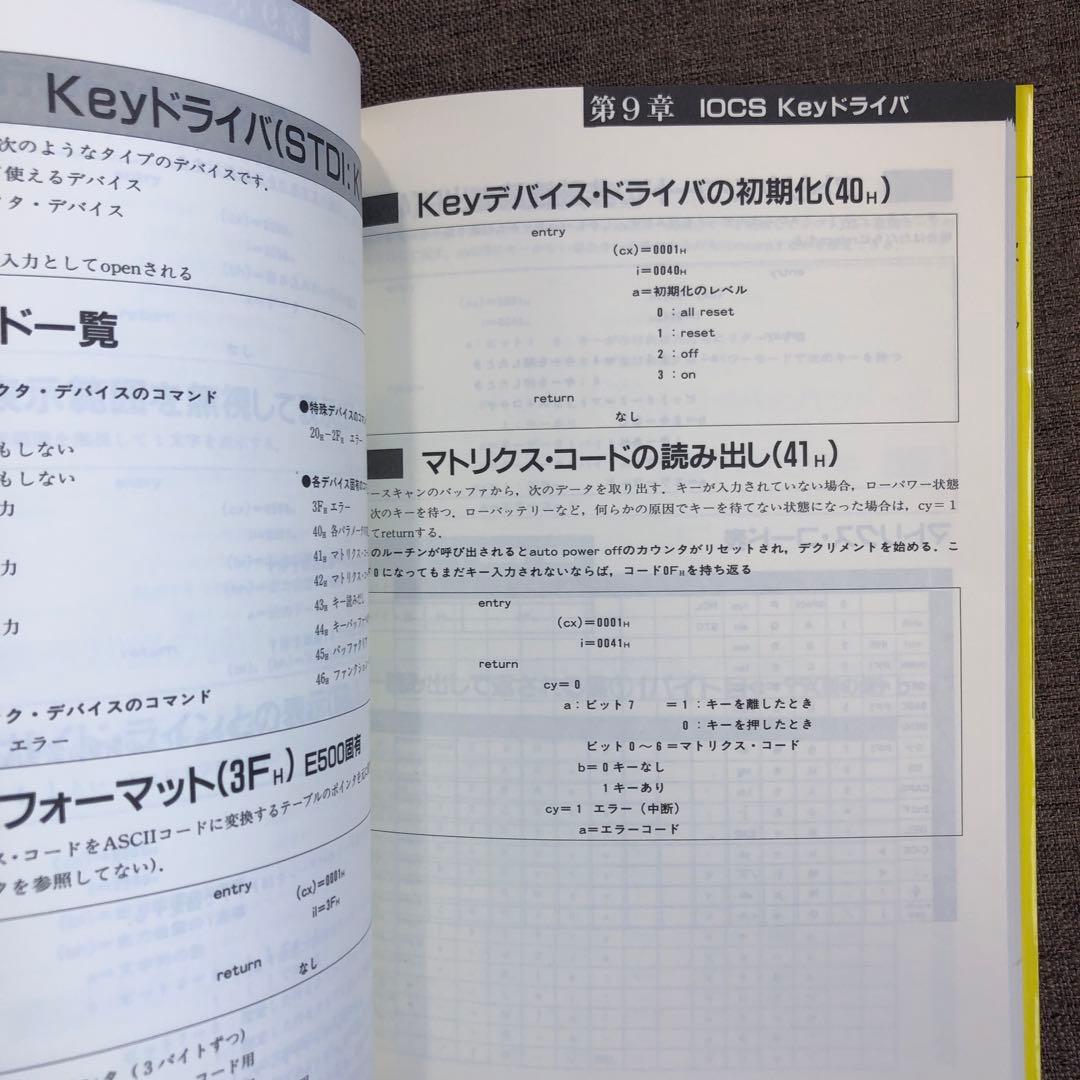 Keyドライバ(STDI: K
次のようなタイプのデバイスです.
使えるデバイス
タ・デバイス
入力としてopenされる
ド一覧
クタ・デバイスのコマンド
もしない
もしない
力
力
力
ク・デバイスのコマンド
エラー
●特殊デバイスのコマン
20H−2FH エラー
●各デバイス固有のコ
3FH エラー
40H 各パラメータ
41H マトリクス・コー
42H マトリクス・
43H キー読みだし
44H キーバッファ
45H バッファクリア
46H ファンクション
フォーマット(3FH) E500固有
ス・コードをASCIIコードに変換するテーブルのポインタを
タを参照してない).
entry
(cx)=0001H
il=3FH
return
なし
タ (3バイトずつ)
コード用
第9章 IOCS Keyドライバ
Keyデバイス・ドライバの初期化(40H)
entry
(cx)=0001H
i=0040H
a=初期化のレベル
0：all reset
1：reset
2：off
3：on
return
なし
マトリクス・コードの読み出し(41H)
ースキャンのバッファから，次のデータを取り出す．キーが入力されていない場合，ローパワー状態
次のキーを待つ．ローバッテリーなど，何らかの原因でキーを待てない状態になった場合は，cy=1
てreturnする．
のルーチンが呼び出されるとauto power offのカウンタがリセットされ，デクリメントを始める．こ
0になってもまだキー入力されないならば，コード0FHを持ち返る
entry
(cx)=0001H
i=0041H
return
cy=0
a：ビット7 =1：キーを離したとき
0：キーを押したとき
ビット0～6=マトリクス・コード
b=0キーなし
1キーあり
cy=1 エラー (中断)
a=エラーコード